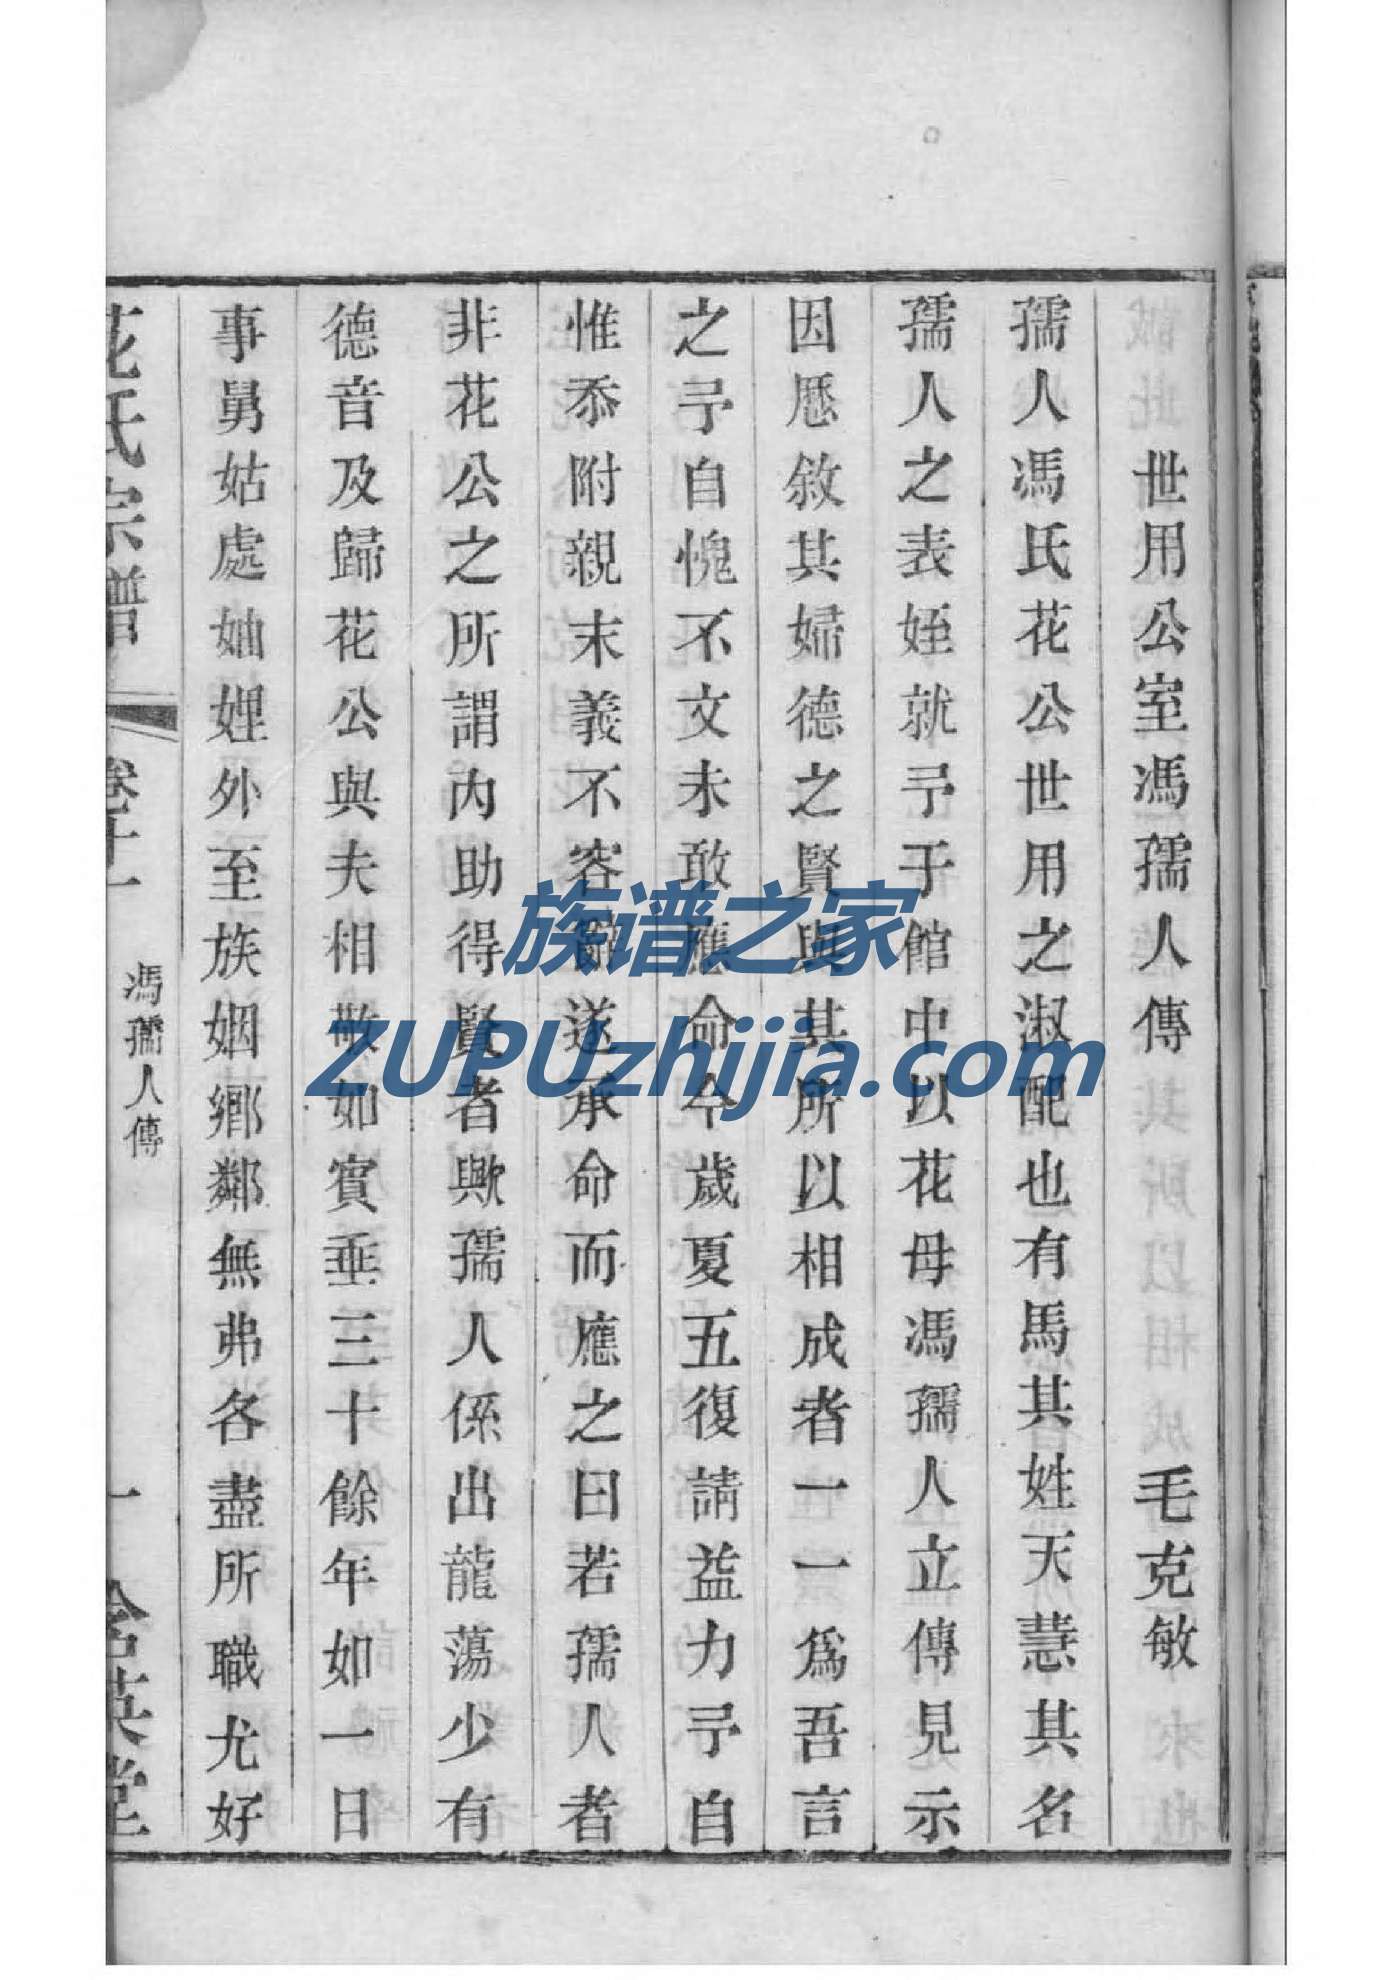 世用公室馮孺人傳 毛克敏
孺人馮氏花公世用之淑配也有馬其姓天慧其名
孺人之表姪就予于館中以花母馮孺人立傳見示
因歷敘其婦德之賢與其所以相成者一一爲吾言
之予自愧不文未敢應命今歲夏五復請益力予自
惟忝附親末義不容辭遂承命而應之曰若孺人者
非花公之所謂內助得賢者歟孺人係出龍蕩少有
德音及歸花公與夫相敬如賓垂三十餘年如一日
事舅姑處妯娌外至族姻鄉鄰無弗各盡所職尤好
花氏宗譜 卷十一 馮孺人傳 一 含英堂
族谱之家
ZUPUzhijia.com